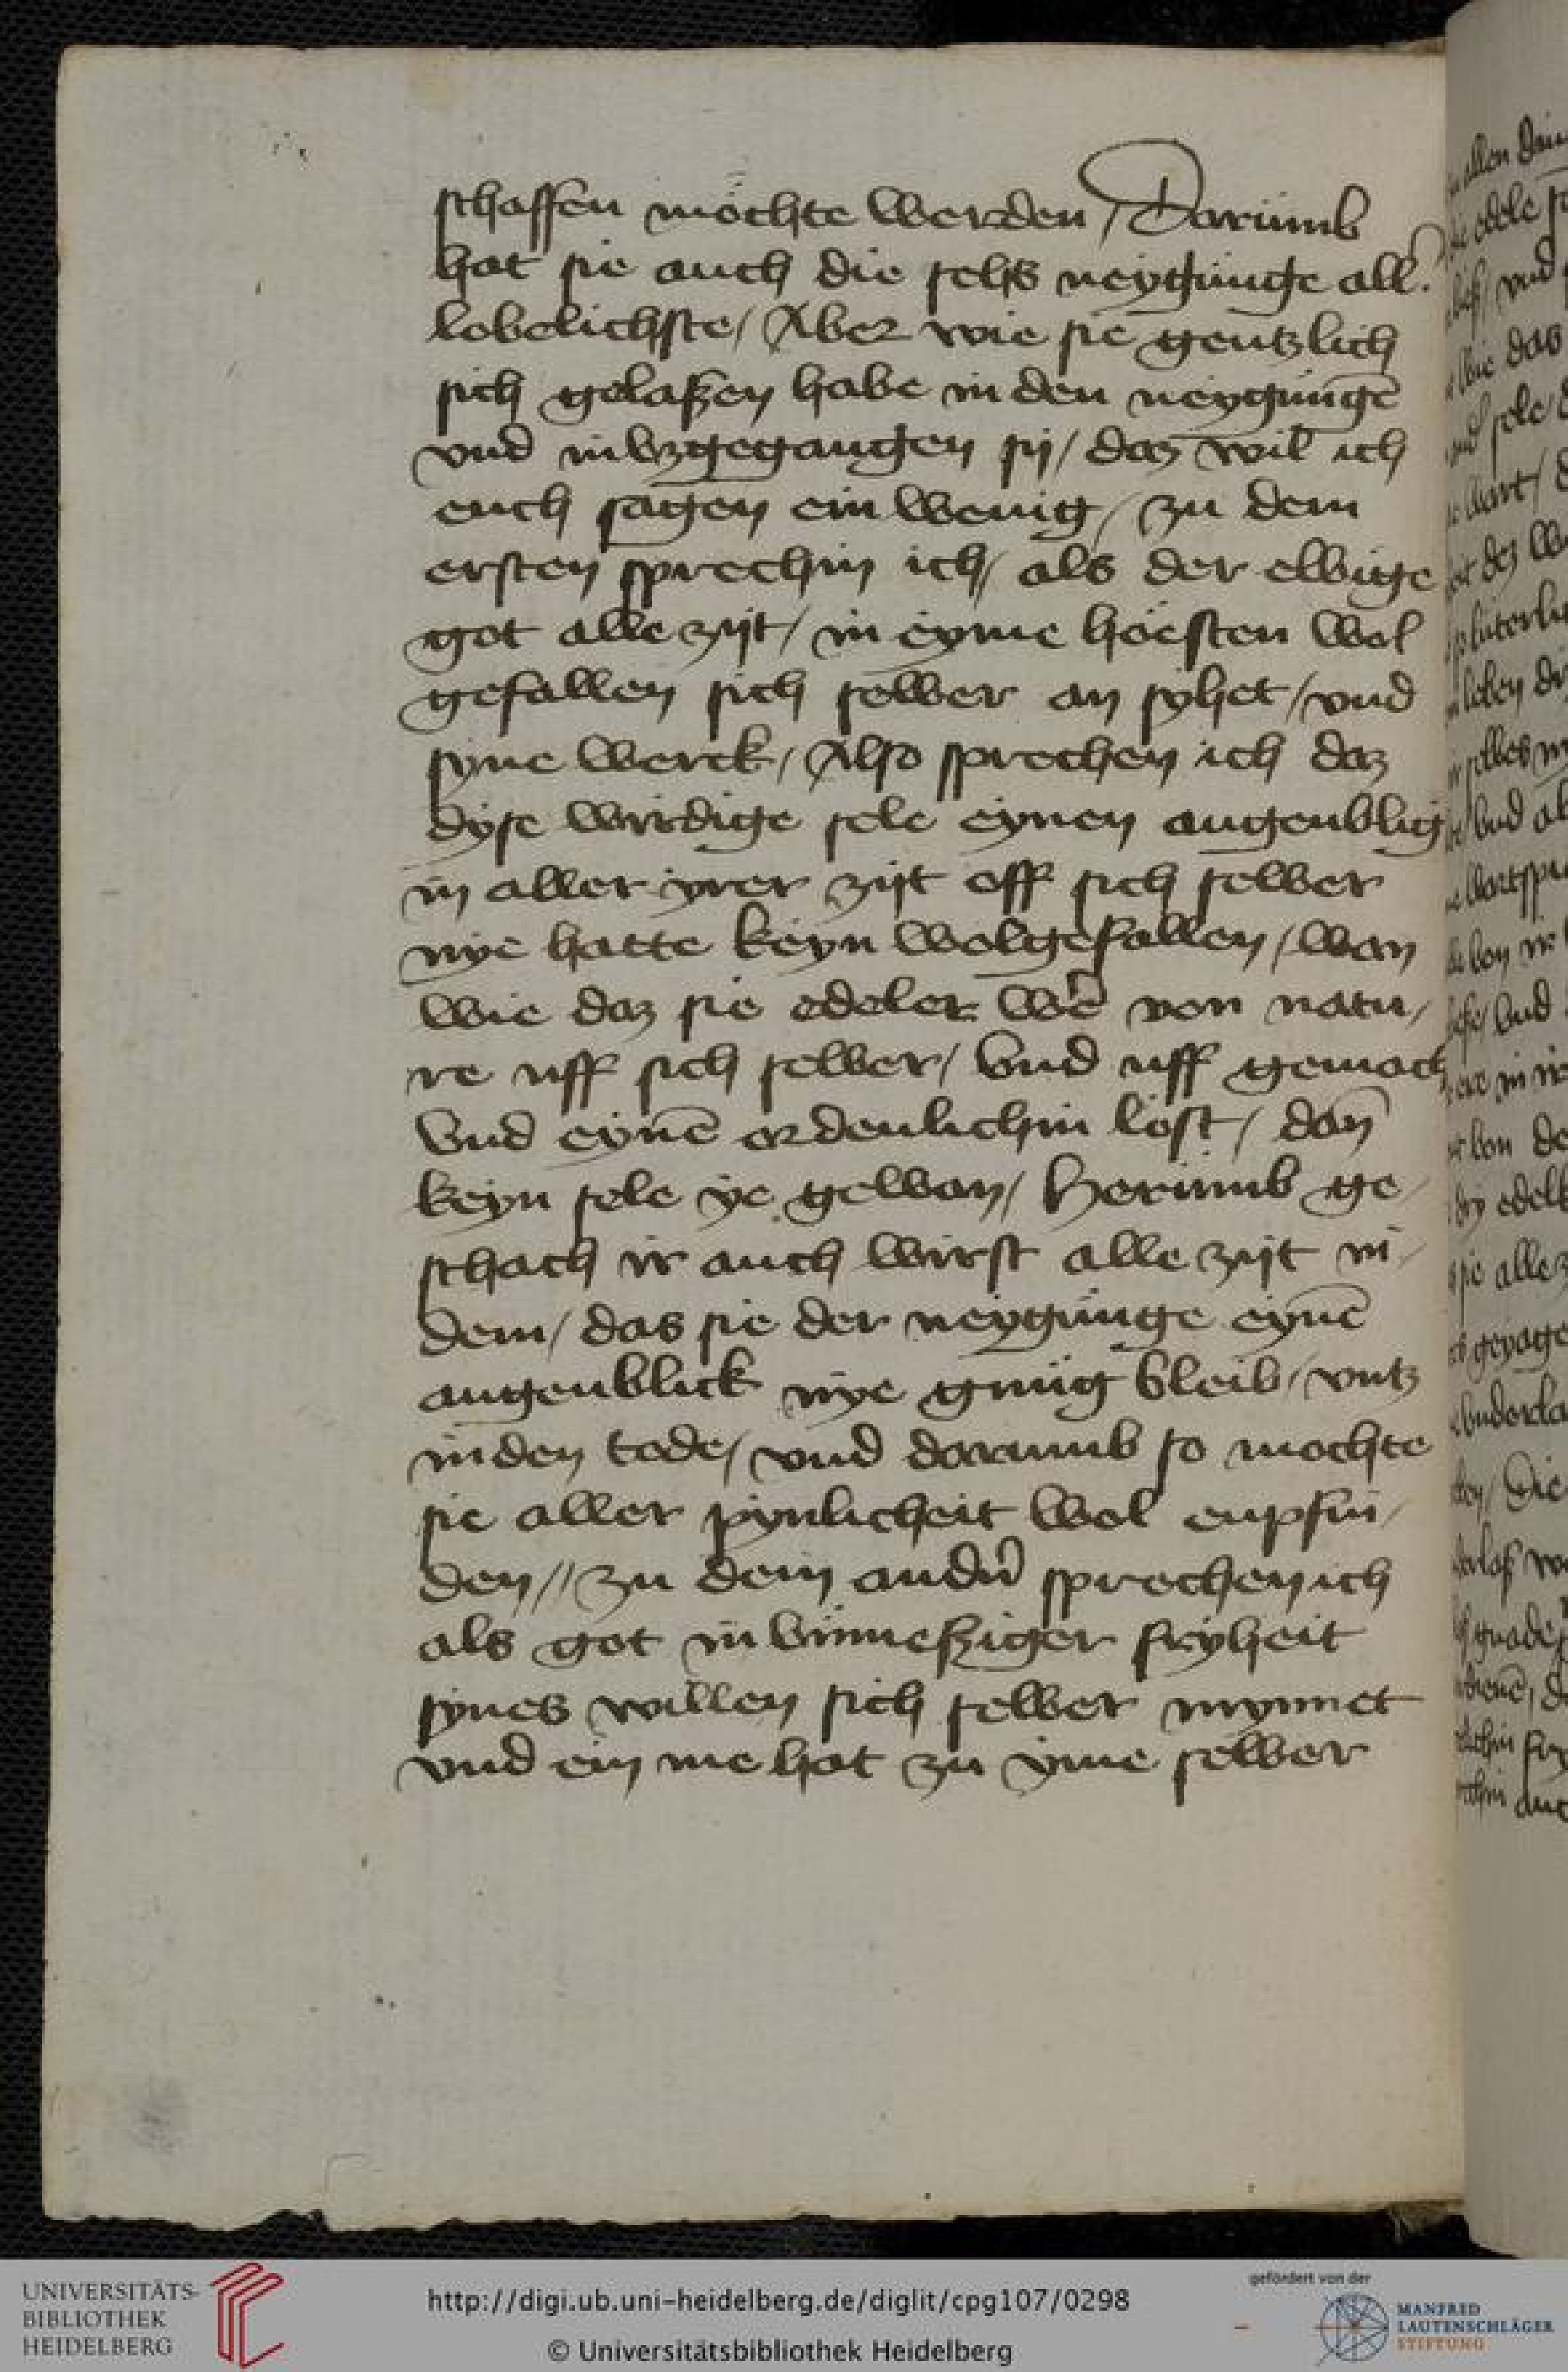 schaffen möchte werden / Darumb
hat sie auch die selbs neygunge all᷑
lobelichste / Aber wie sie gentzlich
sich gelaßen habe in den neygungē
vnd inbzgegangen sij / daz wil ich
euch sagen ein wenig / zu dem
ersten sprechin ich / als der ewige
got alle zijt / in eyme höesten wol
gefallen sich selber an syhet / vnd
syne werck / Also sprechen ich daz
dyse wirdige sele eynen augenblig
in aller yrer zijt off sich selber
nye hatte keyn wolgefallen / wan
wie daz sie edeler wē von natu /
re uff sich selber / vnd uff gemach
vnd eynē ordenlichin löst / dan̄
keyn sele ye gewan / Herumb ge /
schach ir auch wirst alle zijt in /
dem / das sie der neygunge eynē
augenblick nye gnüg bleib / vntz
in den tode / vnd darumb so mochte
sie aller pynlicheit wol enpfin /
den // zu dem andn᷑ sprechen ich
als got in vnmeßiger fryheit
synes willen sich selber mynnet
vnd ein me hat zu yme selber
allen
edele
vnd
wie das
vnd sele
leben
vnd
vnd
von
edel
sie alle
Die
gnade
UNIVERSITÄTS-
BIBLIOTHEK
HEIDELBERG
http://digi.ub.uni-heidelberg.de/diglit/cpg107/0298
© Universitätsbibliothek Heidelberg
gefördert von der
MANFRED
LAUTENSCHLÄGER
STIFTUNG